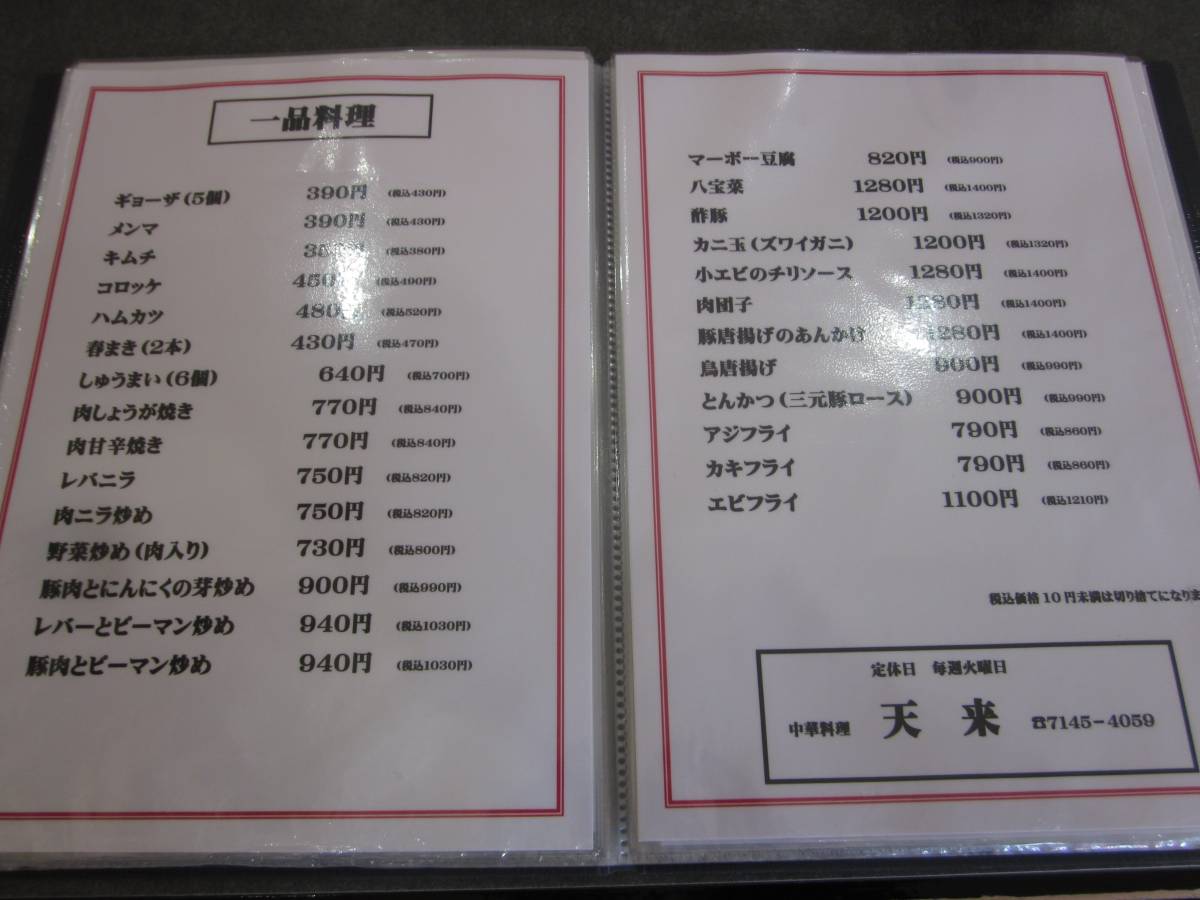 一品料理
ギョーザ(5個) 390円 (税込430円)
メンマ 390円 (税込430円)
キムチ (税込380円)
コロッケ 450円 (税込490円)
ハムカツ 480円 (税込520円)
春まき(2本) 430円 (税込470円)
しゅうまい(6個) 640円 (税込700円)
肉しょうが焼き 770円 (税込840円)
肉甘辛焼き 770円 (税込840円)
レバニラ 750円 (税込820円)
肉ニラ炒め 750円 (税込820円)
野菜炒め(肉入り) 730円 (税込800円)
豚肉とにんにくの芽炒め 900円 (税込990円)
レバーとピーマン炒め 940円 (税込1030円)
豚肉とピーマン炒め 940円 (税込1030円)
マーボー豆腐 820円 (税込900円)
八宝菜 1280円 (税込1400円)
酢豚 1200円 (税込1320円)
カニ玉(ズワイガニ) 1200円 (税込1320円)
小エビのチリソース 1280円 (税込1400円)
肉団子 1280円 (税込1400円)
豚唐揚げのあんかけ 1280円 (税込1400円)
鳥唐揚げ 900円 (税込990円)
とんかつ(三元豚ロース) 900円 (税込990円)
アジフライ 790円 (税込860円)
カキフライ 790円 (税込860円)
エビフライ 1100円 (税込1210円)
税込価格10円未満は切り捨てになりま
定休日 毎週火曜日
中華料理 天来 ☎7145-4059